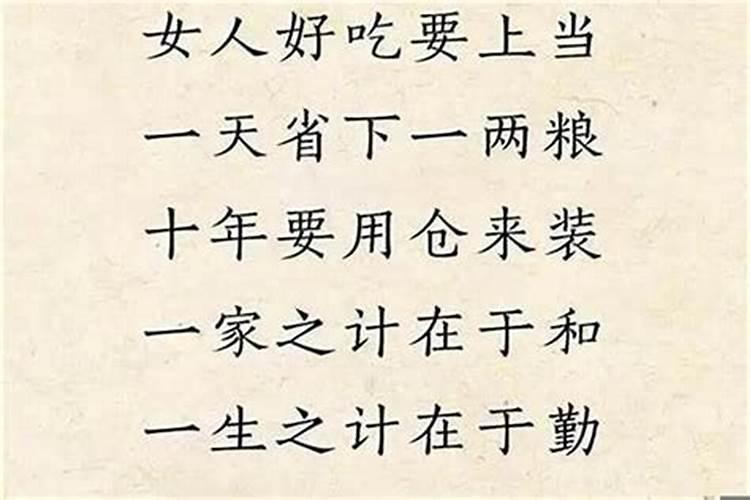 女人好吃要上当
一天省下一两粮
十年要用仓来装
一家之计在于和
一生之计在于勤